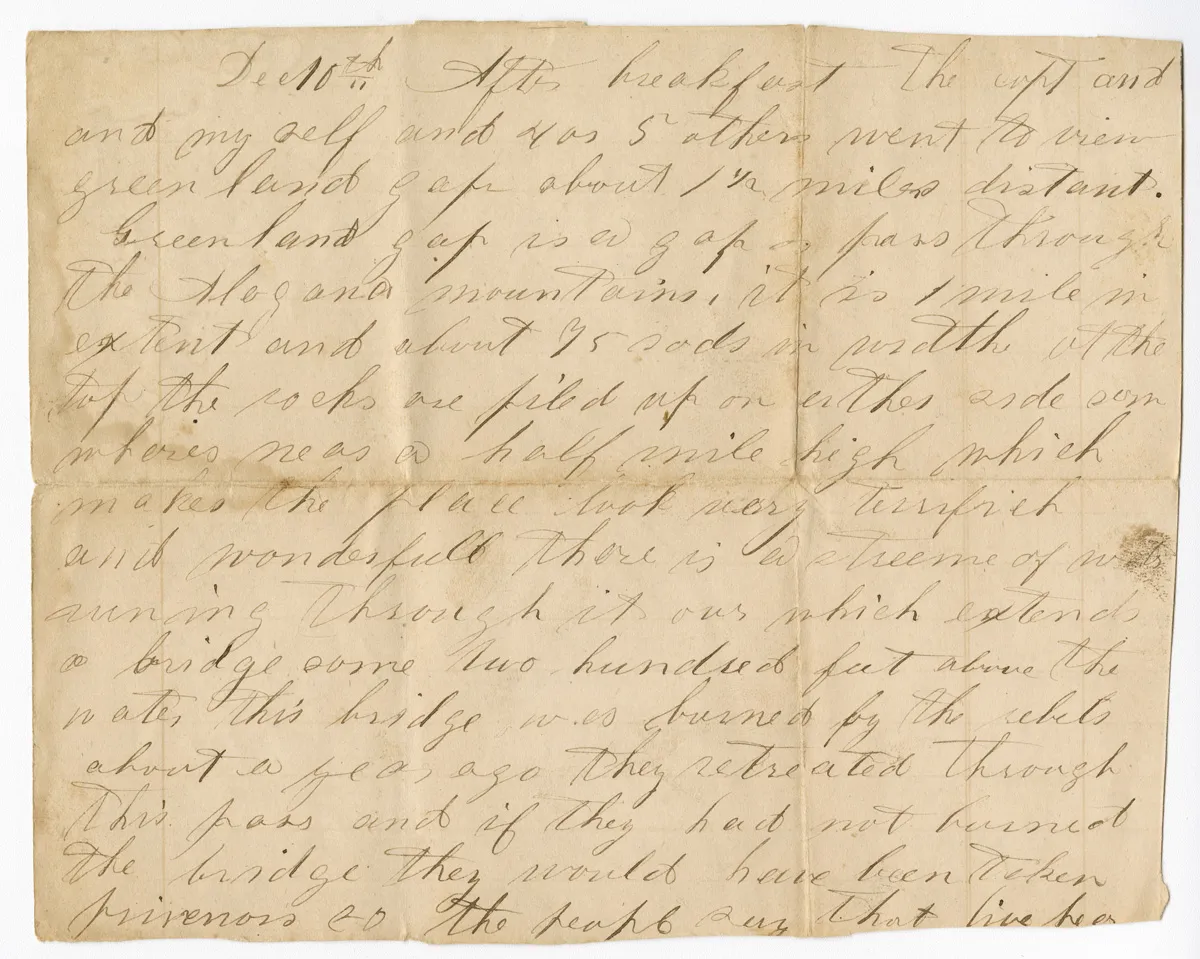 Dec 10th After breakfast the capt and
and my self and 4 or 5 others went to view
green land gap about 1 1/2 miles distant.
Greenland gap is a gap or pass through
the Alogana mountains, it is 1 mile in
extent and about 75 rods in width at the
top the rocks are piled up on either side som
wheries near a half mile high which
makes the place look very terrifich
and wonderfull there is a streeme of
runing through it our which extends
a bridge some two hundred feet above the
water this bridge was burned by the rebels
about a year ago they retreated through
this pass and if they had not burned
the bridge they would have been taken
prisenors so the peopl say that live hear